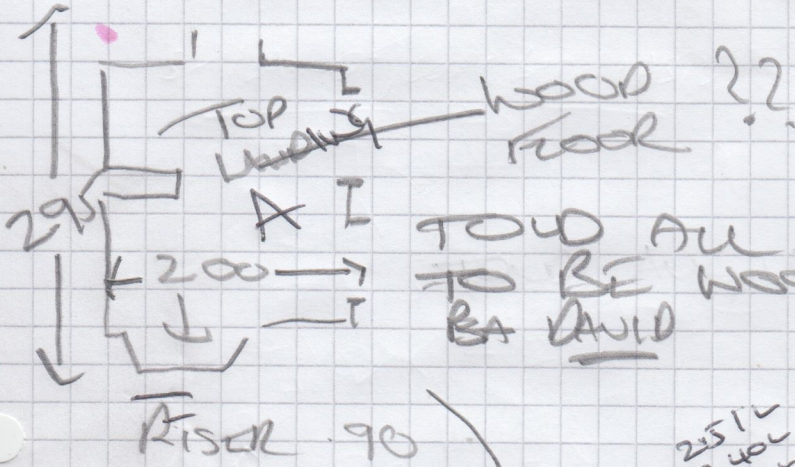 TOP
LANDING
WOOD ??
FLOOR
295
A
TOLD ALL
200
TO BE WOO
BA DAVID
RISER 90
2.51